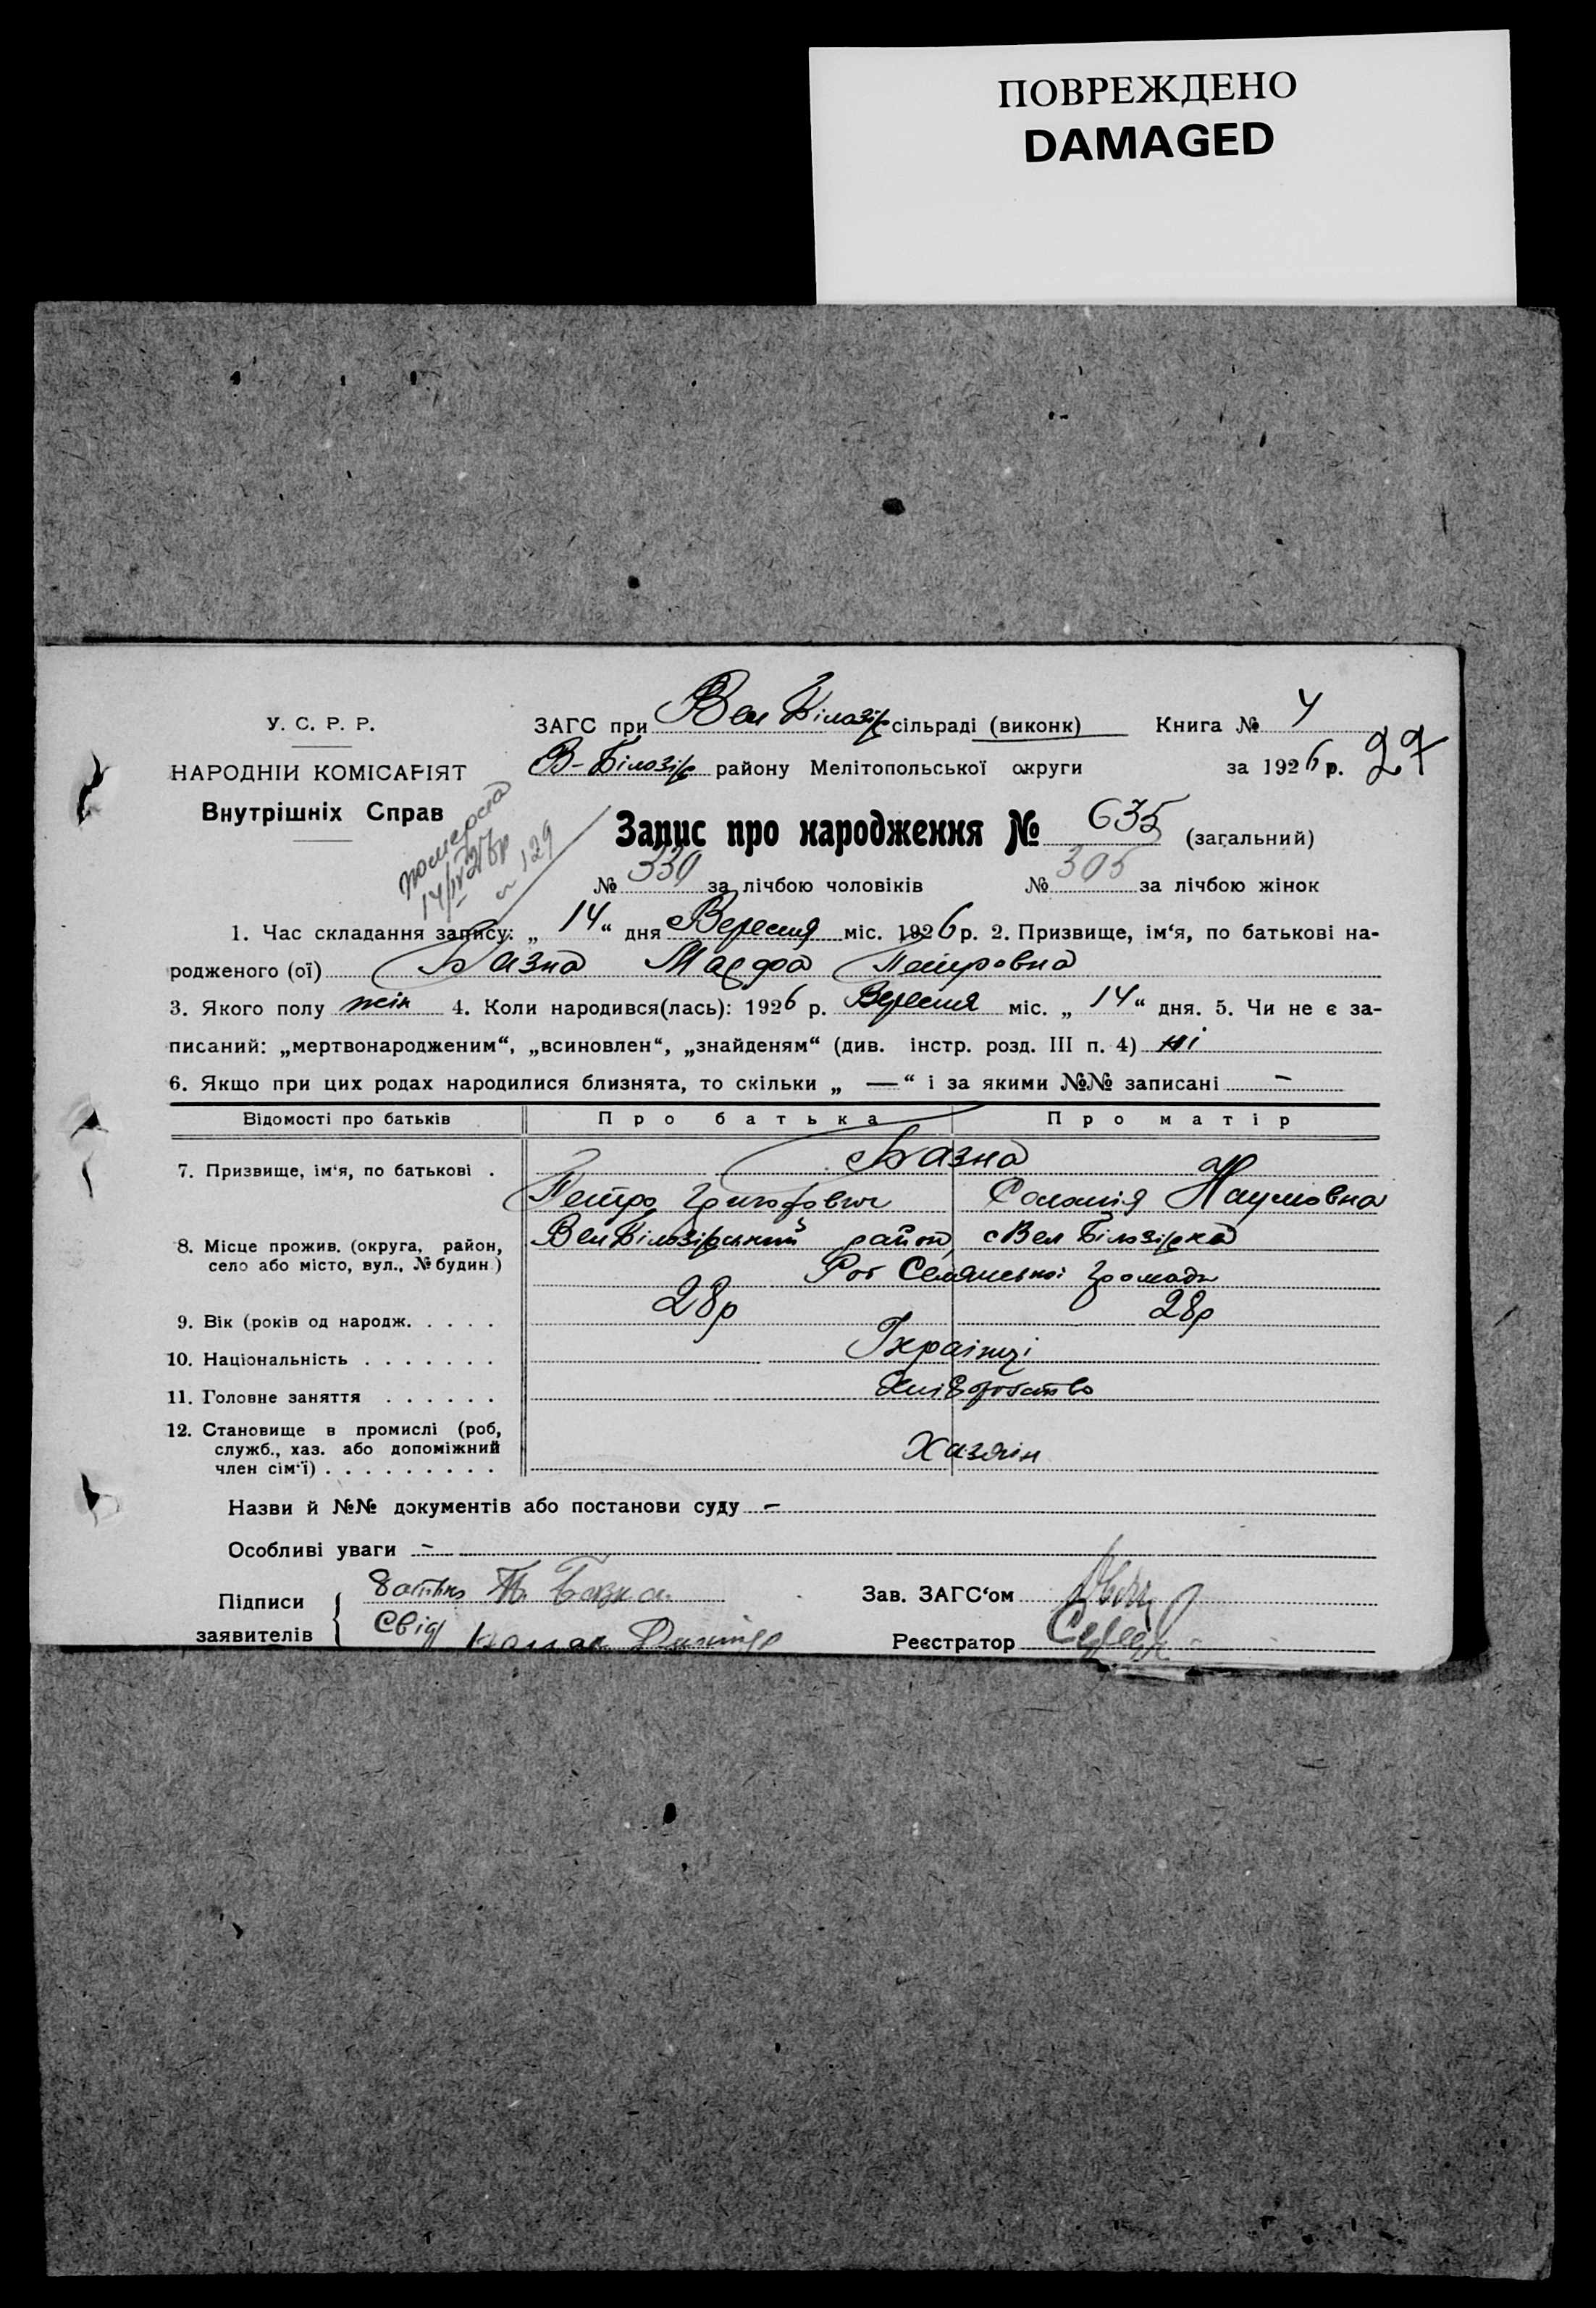 ПОВРЕЖДЕНО
DAMAGED
У. С. Р. Р.
НАРОДНІЙ КОМІСАРІЯТ
Внутрішніх Справ
ЗАГС при Вел Білозір сільраді (виконк) Книга № 4
В-Білозір району Мелітопольської округи за 1926 р. 27
померла
14/IV 27 р
№ 129
Запис про народження № 635 (загальний)
№ 330 за лічбою чоловіків № 305 за лічбою жінок
1. Час складання запису: „ 14 “ дня Вересня міс. 1926 р. 2. Призвище, ім‘я, по батькові на-
родженого (ої) Базна Марфа Петровна
3. Якого полу жін 4. Коли народився(лась): 1926 р. Вересня міс. „ 14 “ дня. 5. Чи не є за-
писаний: „мертвонародженим“, „всиновлен“, „знайденям“ (див. інстр. розд. III п. 4) ні
6. Якщо при цих родах народилися близнята, то скільки „ — “ і за якими №№ записані –
Відомості про батьків Про батька Про матір
7. Призвище, ім‘я, по батькові . Базна
Петро Григорович Соломія Наумовна
8. Місце прожив. (округа, район, село або місто, вул., № будин.) ВелБілозірський район, с Вел Білозірка
громади
9. Вік (років од народж. . . . . 28р 28р
10. Національність . . . . . . . Українці
11. Головне заняття . . . . . . Хліборобство
12. Становище в промислі (роб, служб., хаз. або допоміжний член сім‘ї) . . . . . . . . . Хазяїн
Назви й №№ документів або постанови суду –
Особливі уваги –
Підписи заявителів { батько П. Базна
Свід
Зав. ЗАГС‘ом
Реєстратор